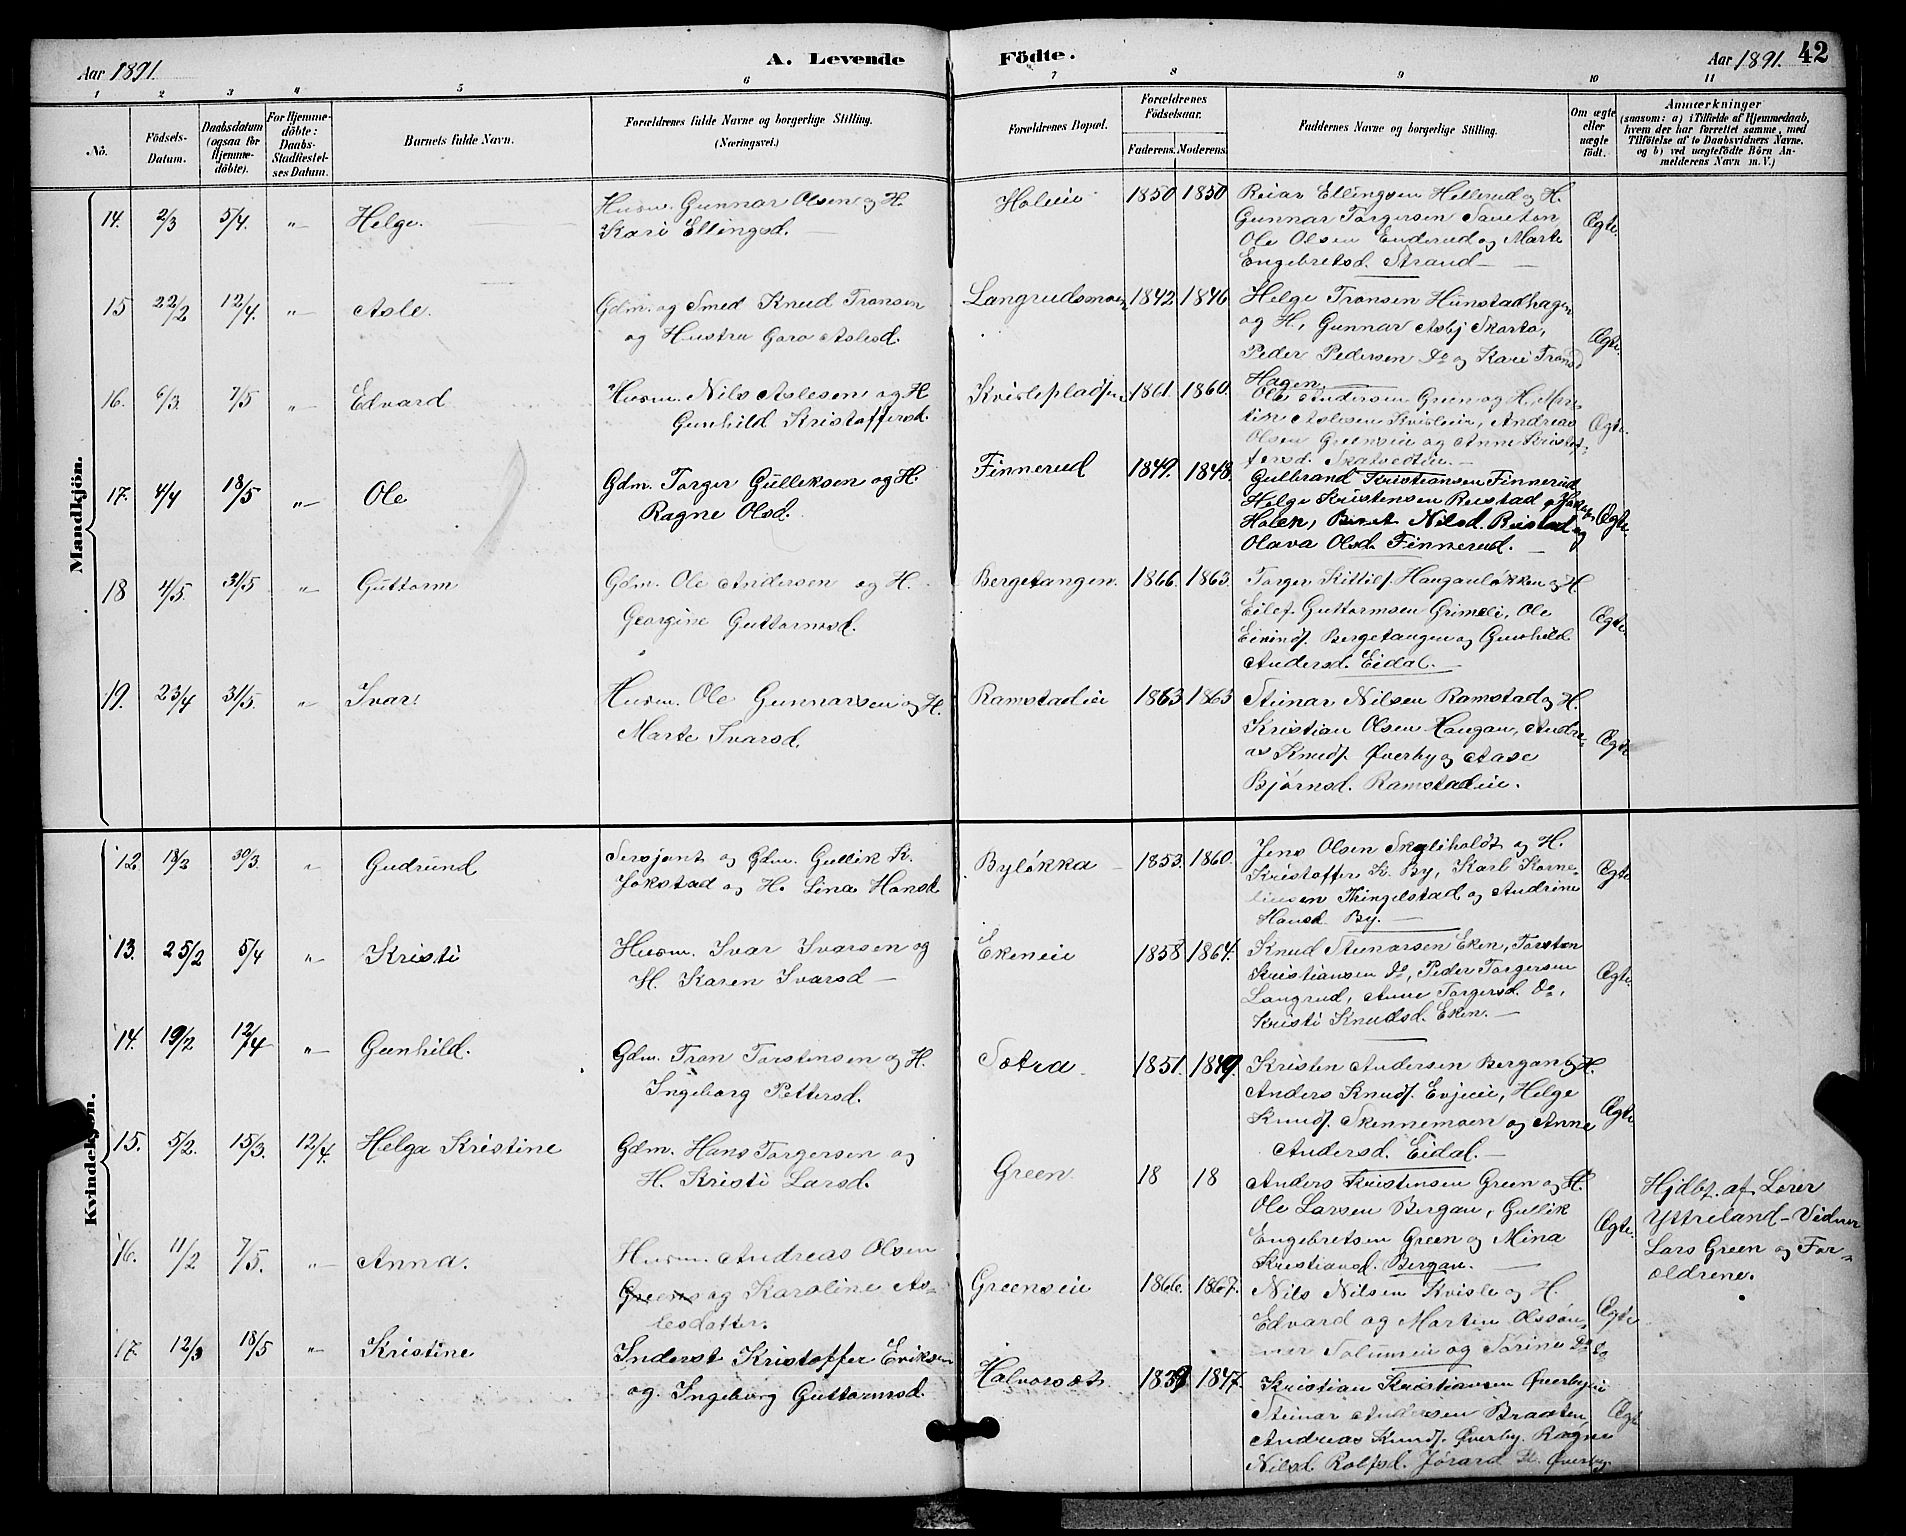 Aar 1891.
A. Levende
Födte.
Aar 1891.
42
1 2 3 4 5 6 7 8 9 10 11
No.
Födsels-
Datum.
Daabsdatum
(ogsaa for
Hjemme-
döbte).
For Hjemme-
döbte:
Daabs-
Stadfæstel-
ses Datum.
Barnets fulde Navn.
Forældrenes fulde Navne og borgerlige Stilling.
(Næringsvei.)
Forældrenes Bopæl.
Forældrenes
Födselsaar.
Faderens. Moderens.
Faddernes Navne og borgerlige Stilling.
Om ægte
eller
uægte
født.
Anmærkninger
(saasom: a) i Tilfælde af Hjemmedaab,
hvem der har forrettet samme, med
Tilföielse af to Daabsvidners Navne.
og b) ved uægtefödte Börn An-
melderens Navn m. V.)
Mandkjön.
14. 2/3 5/4. " Helge.
Husm. Gunnar Olsen og H.
Kari Ellingsd.
Holeie 1850 1850
Reiar Ellingsen Hellerud og H.
Gunnar Torgersen
Ole Olsen Enderud og Marte
Engebretsd. Strand
Ægte.
15 22/2 12/4. " Asle.
Gdm. og Smed Knud Tronsen
og Hustru Goro Aslesd.
Langrudsmoen 1842 1846
Helge Tronsen Hunstadhagen
og H., Gunnar Asbj Skarta,
Peder Pedersen Do og Kari Tronsd
Hagen
Ægte.
16. 6/3. 7/5 " Edvard
Husm. Nils Aslesen og H
Gunhild Kristoffersd.
Kvislepladsen 1861. 1860.
Ole Andersen Green og H. Mar-
tin Aslesen Kvisleie, Andreas
Olsen Greenseie og Anne Kristof-
fersd.
Ægte.
17. 4/4 18/5 " Ole
Gdm. Torger Gulliksen og H.
Ragne Olsd.
Finnerud 1849. 1848.
Gulbrand Kristiansen Finnerud
Helge Kristensen Rustad
Holen, Beret Nilsd. Rustad og
Olava Olsd. Finnerud.
Ægte.
18 4/5. 31/5 " Guttorm
Gdm. Ole Andersen og H.
Georgine Guttormsd.
Bergetangen. 1866. 1863.
Torger Kittilf. Hauganløkken og H.
Eilef Guttormsen Grimeli, Ole
Eivindf. Bergetangen og Gunhild
Andersd. Eidal.
Ægte.
19. 23/4 31/5. " Ivar
Husm. Ole Gunnarsen og H.
Marte Ivarsd.
Ramstadeie 1863 1863
Steinar Nilsen Ramstad og H.
Kristian Olsen Haugan, Andre-
as Knudf. Øverby og Aase
Bjørnsd. Ramstadeie.
Ægte
Kvindekjön.
12. 18/3 30/3. " Gudrund
Sersjant og Gdm. Gullik K.
Jokstad og H. Lina Hansd
Byløkka 1853. 1860.
Jens Olsen Skaliholdt og H.
Kristoffer K. By, Karl Korne-
liusen Thingelstad og Andrine
Hansd. By.
Ægte.
13. 25/2 5/4 " Kristi
Husm. Ivar Ivarsen og
H. Karen Ivarsd
Ekeneie 1858 1864.
Knud Steinarsen Eken, Torsten
Kristiansen Do, Peder Torgersen
Langrud, Anne Torgersd. Do,
Kristi Knudsd. Eken.
Ægte.
14. 19/2 12/4 " Gunhild.
Gdm. Tron Torstensen og H.
Ingeborg Pettersd.
Sætra 1851. 1849.
Kristen Andersen Bergan og H.
Anders Knudf. Evjeeie, Helge
Knudf. Skennemoen og Anne
Andersd. Eidal.
Ægte
15. 5/2. 15/3. 12/4. Helga Kristine
Gdm. Hans Torgersen og
H. Kristi Larsd.
Green. 18 18
Anders Kristensen Green og H.
Ole Larsen Bergan, Gullik
Engebretsen Green og Mina
Kristiansd. Bergan.
Ægte.
Hjdbt. af Lærer
Ytreland - Vidner
Lars Green og For-
ældrene.
16. 11/2 7/5. " Anna.
Husm. Andreas Olsen
Greens og Karoline As-
lesdatter.
Greenseie 1866. 1867.
Nils Nilsen Kvisle og H.
Edvard og Martin Olssøn-
ner Solumeie og Sørine Do
Ægte
17 12/3 18/5 " Kristine
Inderst Kristoffer Eriksen
og Ingeborg Guttormsd.
Halvorsæt 1839 1847.
Kristian Kristiansen Øverbyeie
Steinar Andersen Braaten,
Andreas Knudf. Øverby. Ragne
Nilsd Rolfsd. Jørand Do Øverby.
Ægte